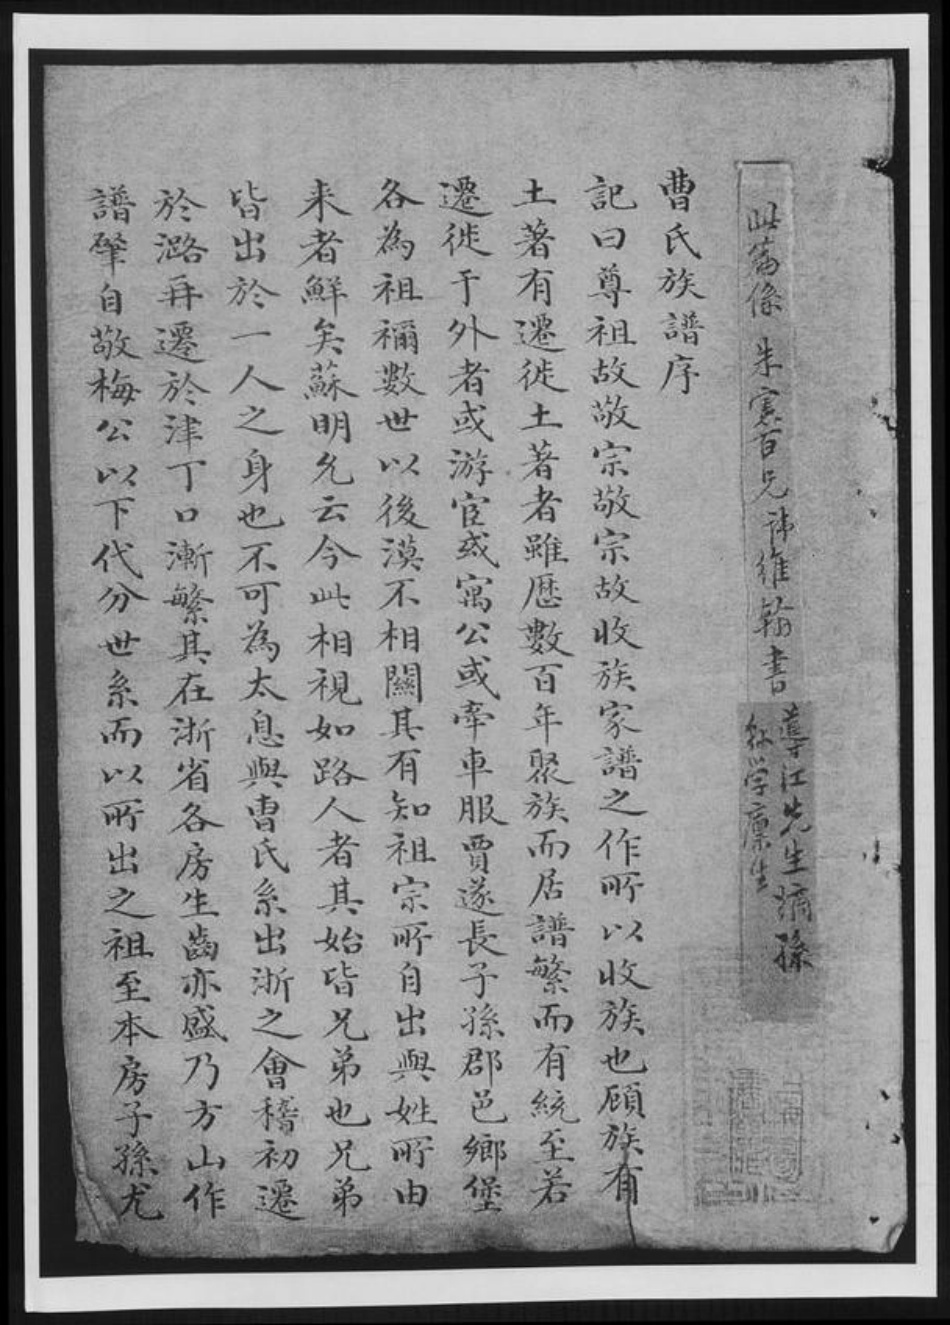 此篇係 朱憲百兄諱維翰書
導江先生嫡孫
紹學廩生
曹氏族譜序
記曰尊祖故敬宗敬宗故收族家譜之作所以收族也顧族有
土著有遷徙土著者雖歷數百年聚族而居譜繁而有統至若
遷徙于外者或游宦或寓公或牽車服賈遂長子孫郡邑鄉堡
各為祖禰數世以後漠不相關其有知祖宗所自出與姓所由
来者鮮矣蘇明允云今此相視如路人者其始皆兄弟也兄弟
皆出於一人之身也不可為太息與曹氏系出浙之會稽初遷
於潞再遷於津丁口漸繁其在浙省各房生齒亦盛乃方山作
譜肇自敬梅公以下代分世系而以所出之祖至本房子孫尤